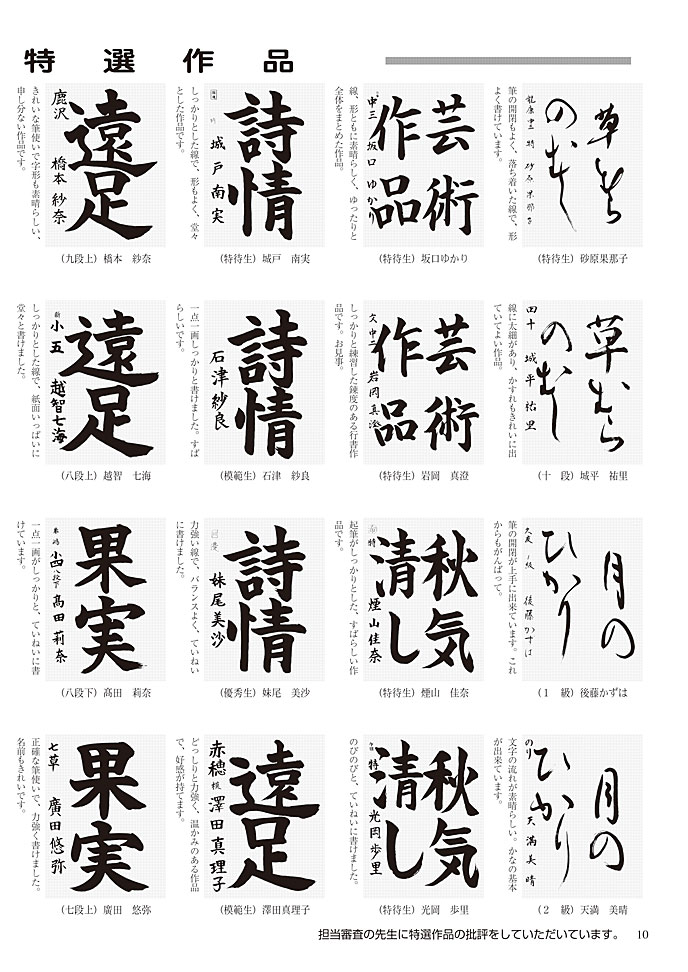 特選作品
草むら
のむし
龍原中三 特 砂原果那子
筆の開閉もよく、落ち着いた線で、形
よく書けています。
（特待生）砂原果那子
芸術
作品
中三 坂口ゆかり
線、形ともに素晴らしく、ゆったりと
全体をまとめた作品。
（特待生）坂口ゆかり
詩情
城戸南実
しっかりとした線で、形もよく、堂々
とした作品です。
（特待生）城戸　南実
遠足
鹿沢 橋本紗奈
きれいな筆使いで字形も素晴らしい、
申し分ない作品です。
（九段上）橋本　紗奈
草むら
のむし
四十 城平祐里
線に太細があり、かすれもきれいに出
ていてよい作品。
（十　段）城平　祐里
芸術
作品
久中二 岩岡真澄
しっかりと練習した錬度のある行書作
品です。お見事。
（特待生）岩岡　真澄
詩情
石津紗良
一点一画しっかりと書けました。すば
らしいです。
（模範生）石津　紗良
遠足
小五 越智七海
しっかりとした線で、紙面いっぱいに
堂々と書けました。
（八段上）越智　七海
月の
ひかり
後藤かずは
筆の開閉が上手に出来ています。これ
からもがんばって。
（１　級）後藤かずは
秋気
清し
特 煙山佳奈
起筆がしっかりとした、すばらしい作
品です。
（特待生）煙山　佳奈
詩情
妹尾美沙
力強い線で、バランスよく、ていねい
に書けました。
（優秀生）妹尾　美沙
果実
小四 八段下 髙田莉奈
一点一画がしっかりと、ていねいに書
けています。
（八段下）髙田　莉奈
月の
ひかり
のり 天満美晴
文字の流れが素晴らしい。かなの基本
が出来ています。
（２　級）天満　美晴
秋気
清し
特 光岡歩里
のびのびと、ていねいに書けました。
（特待生）光岡　歩里
遠足
赤穂 模 澤田真理子
どっしりと力強く、温かみのある作品
で、好感が持てます。
（模範生）澤田真理子
果実
七草 廣田悠弥
正確な筆使いで、力強く書けました。
名前もきれいです。
（七段上）廣田　悠弥
担当審査の先生に特選作品の批評をしていただいています。 10